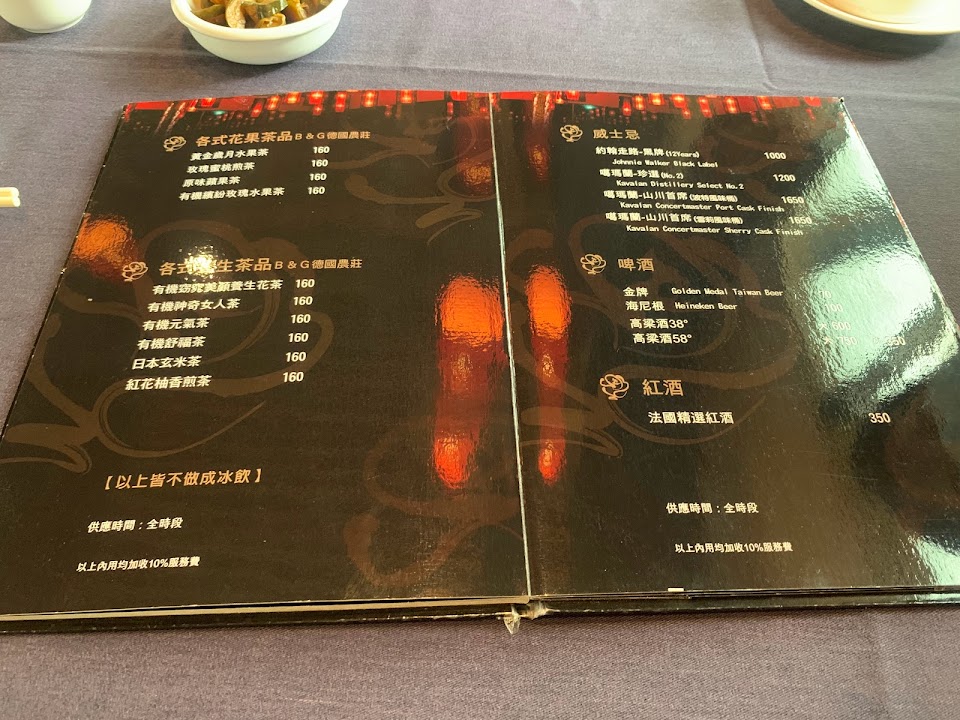 各式花果茶品 B & G 德國農莊
黃金歲月水果茶 160
玫瑰蜜桃煎茶 160
原味蘋果茶 160
有機繽紛玫瑰水果茶 160
各式 生茶品 B & G 德國農莊
有機窈窕美顏養生花茶 160
有機神奇女人茶 160
有機元氣茶 160
有機舒福茶 160
日本玄米茶 160
紅花柚香煎茶 160
【以上皆不做成冰飲】
供應時間：全時段
以上內用均加收10%服務費
威士忌
約翰走路-黑牌 (12Years) 1000
Johnnie Walker Black Label
噶瑪蘭-珍選 (No.2) 1200
Kavalan Distillery Select No.2
噶瑪蘭-山川首席 (波特風味桶) 1650
Kavalan Concertmaster Port Cask Finish
噶瑪蘭-山川首席 (雪莉風味桶) 1650
Kavalan Concertmaster Sherry Cask Finish
啤酒
金牌 Golden Medal Taiwan Beer
海尼根 Heineken Beer
高粱酒38° 600
高粱酒58°
紅酒
法國精選紅酒 350
供應時間：全時段
以上內用均加收10%服務費